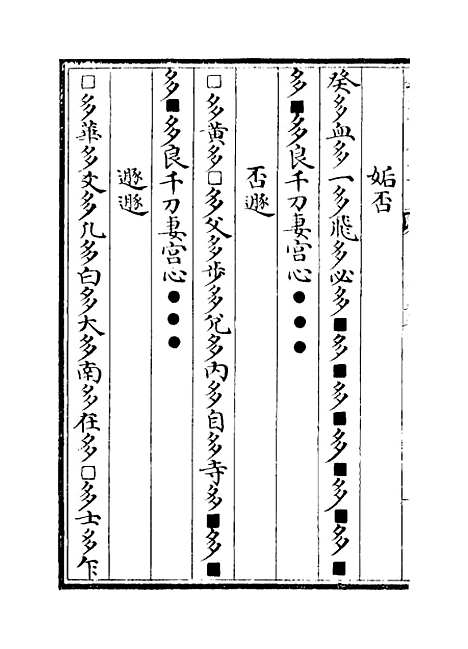 姤否
癸多血多一多飛多必多■多■多■多■多■多■
多■多良千刀妻宫心●●●
否遯
□多黃多□多父多步多兌多内多自多寺多■多■
多■多良千刀妻宫心●●●
遯遯
□多華多爻多凡多白多大多南多在多□多士多乍